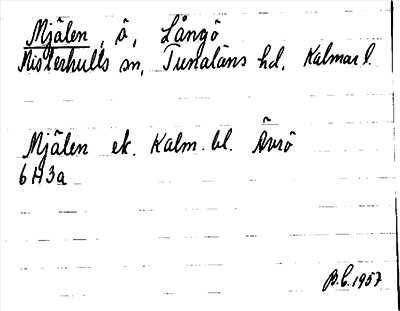 Mjälen, ö, Långö
Misterhults sn, Tunaläns hd, Kalmar l.
Mjälen ek. Kalm. bl. Ävrö
6 H 3a
1957